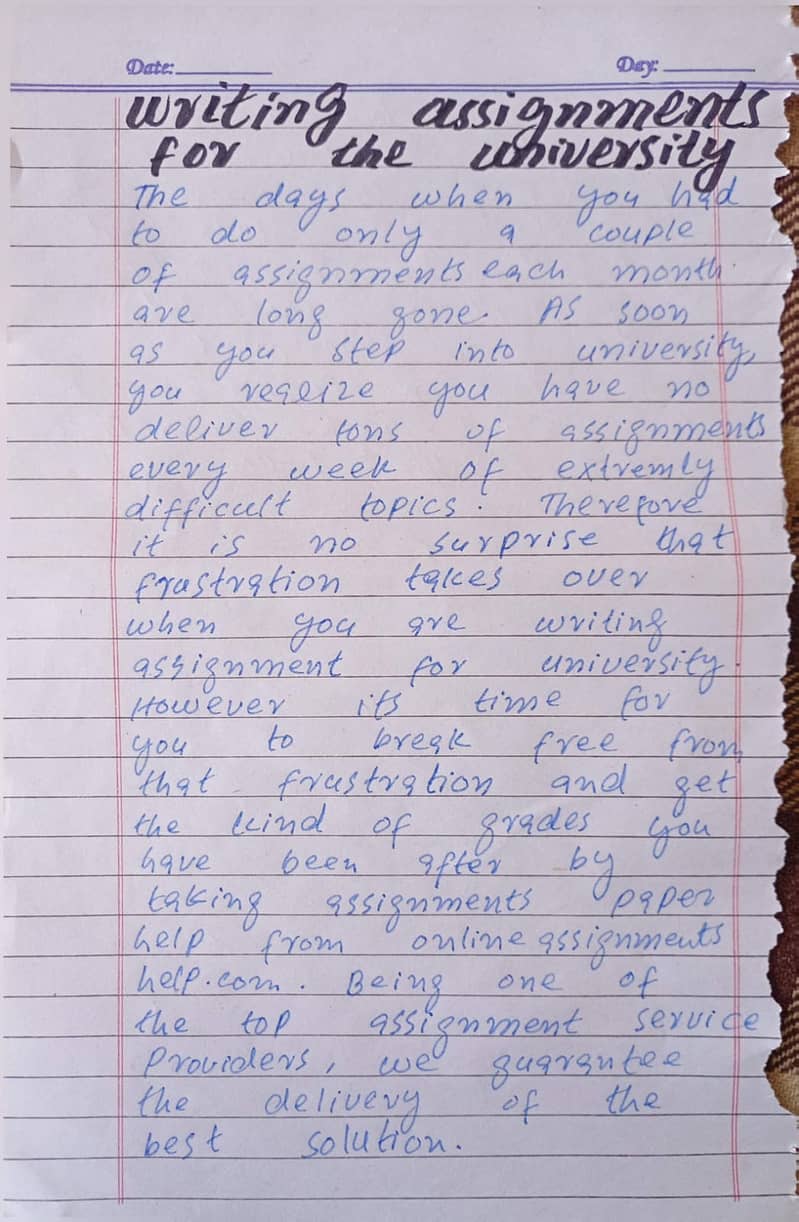 Date:
Day:
writing assignments
for the university
The days when you had
to do only a couple
of assignments each month
are long gone. As soon
as you step into university,
you reqlize you have no
deliver tons of assignments
every week of extremly
difficult topics. Therefore
it is no surprise that
frustration takes over
when you are writing
assignment for university.
However its time for
you to break free from
that frustration and get
the kind of grades you
have been after by
taking assignments paper
help from online assignments
help.com. Being one of
the top assignment service
Providers, we guarantee
the delivery of the
best solution.